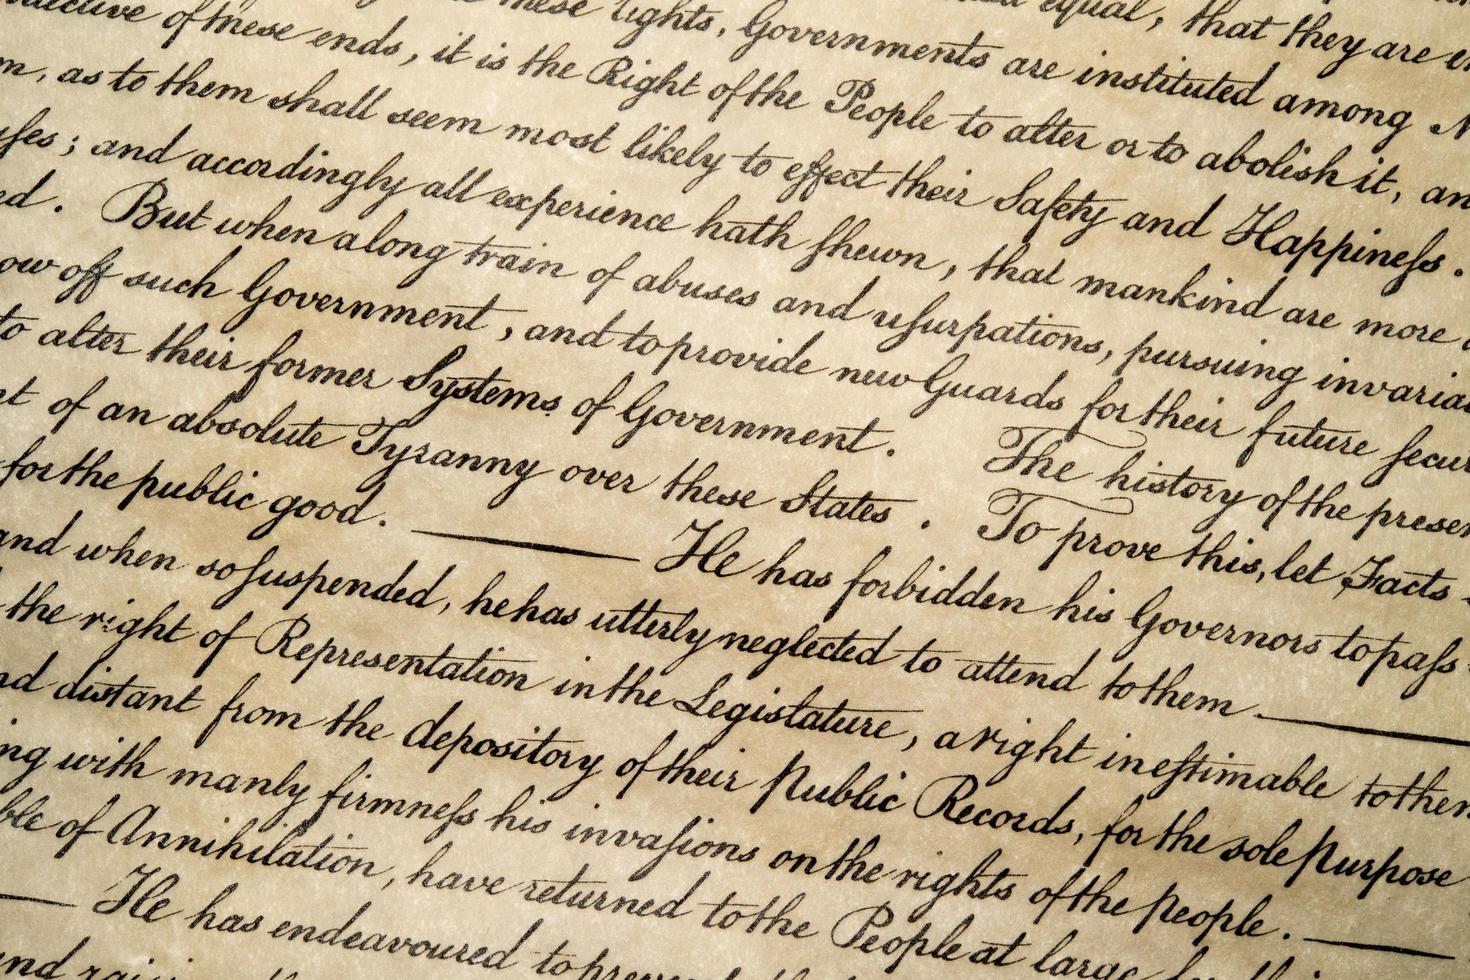 these rights, Governments are instituted among
equal, that they are
of these ends, it is the Right of the People to alter or to abolish it, an
m, as to them shall seem most likely to effect their Safety and Happineſs.
uſes; and accordingly all experience hath ſhewn, that mankind are more
ed. But when a long train of abuses and uſurpations, pursuing invaria
ow off such Government, and to provide new Guards for their future ſecur
to alter their former Systems of Government. The history of the presen
nt of an absolute Tyranny over these States. To prove this, let Facts
for the public good. — He has forbidden his Governors to paſs
and when so ſuspended, he has utterly neglected to attend to them —
the right of Representation in the Legislature, a right ineſtimable to them
nd distant from the depository of their Public Records, for the sole Purpose
ng with manly firmneſs his invaſions on the rights of the people. —
ble of Annihilation, have returned to the People at large
— He has endeavoured to
and